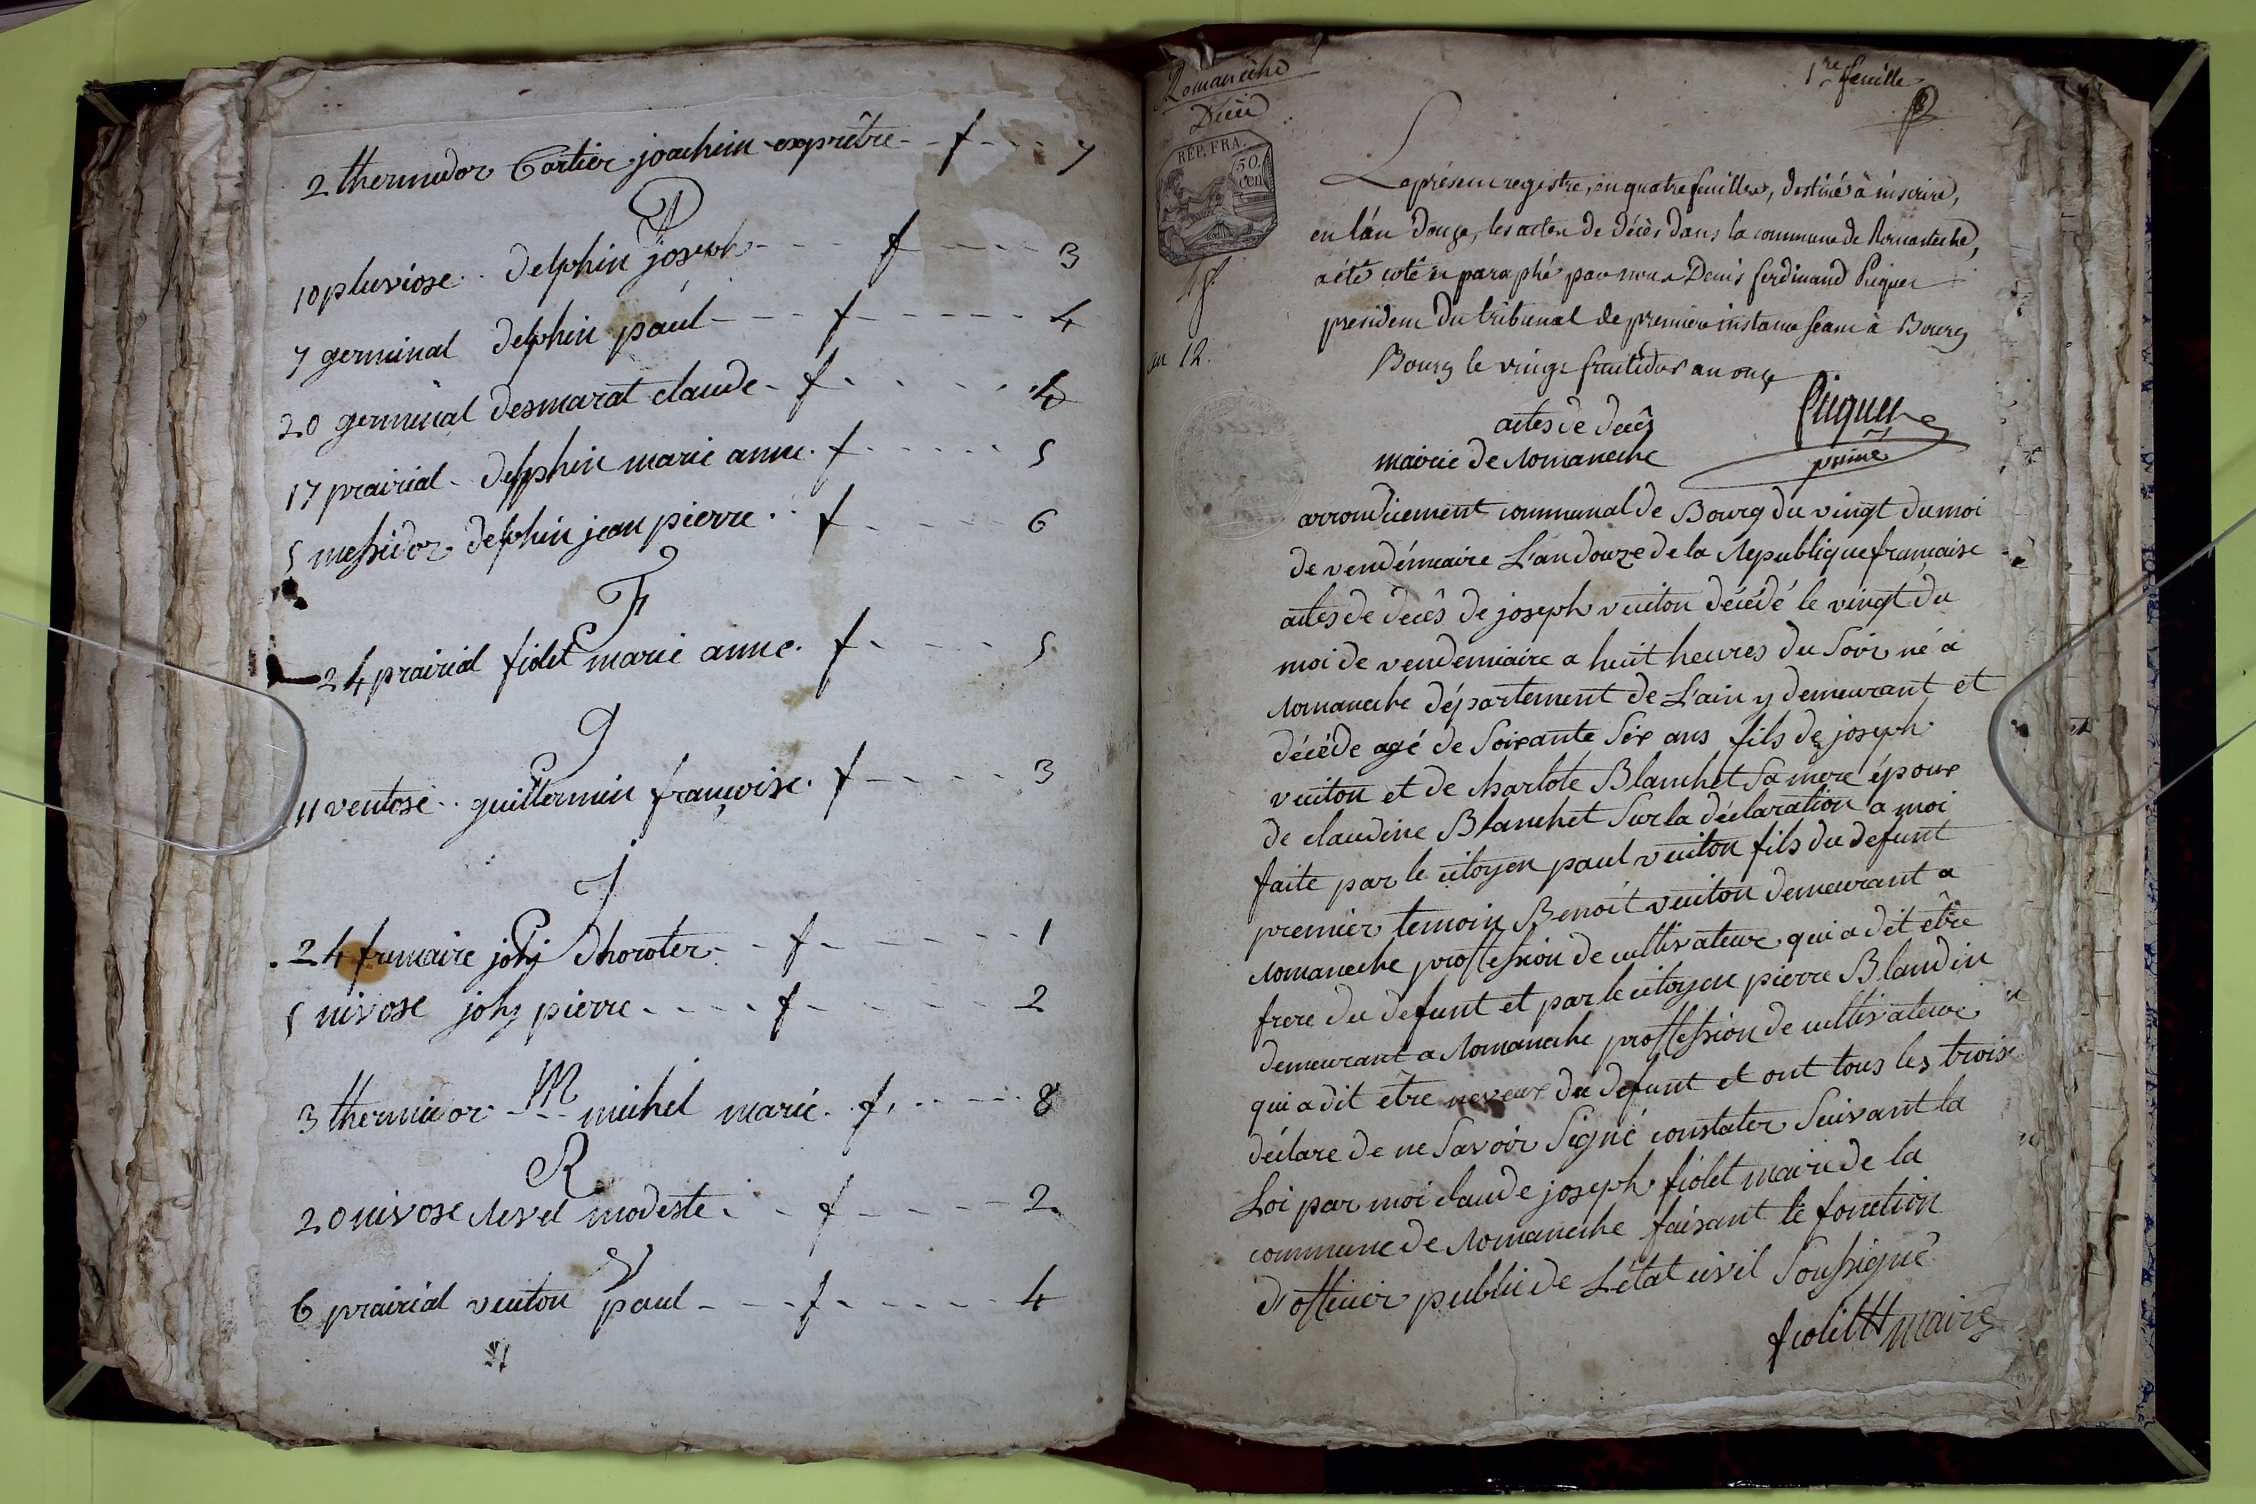 2 thermidor Cartier joachim exprêtre - - f - - - 7
D
10 pluviose . . delphin joseph - - - - f - - - - 3
7 germinal delphin paul - - - - f - - - - - - 4
20 germinal desmarat claude - f - - - - - - 4
17 prairial - delphin marie anne . f - - - - - 5
5 messidor delphin jean pierre . . f - - - - - 6
F
24 prairial fiolet marie anne . f - - - - 5
g
11 ventose . . guillermin françoise . f - - - - - 3
J
24 frimaire joly dhoroter - - f - - - - - - - 1
5 nivose joly pierre - - - - - f - - - - - - - 2
M
3 thermidor - - - michel marie . . f . - - - - 8
R
20 nivose revel modeste . - - f - - - - - - 2
V
6 prairial vuiton paul - - - - f - - - - - - 4
Romanêche
Décès
REP. FRA.
50
cen
an 12.
1re feuille
Le présent registre, en quatre feuilles, destiné à inscrire,
en l'an Douze, les actes de décès dans la commune de Romanêche,
a été coté et paraphé par nous Denis ferdinand Picquet
president du tribunal de premiere instance seant à Bourg
Bourg le vingt fructidor an onze
Picquet
actes de decês
mairie de Romaneche
arrondicement communal de Bourg du vingt du moi
de vendémiaire L'an douze de la Republique française
actes de decês de joseph vuiton décédé le vingt du
moi de vendemiaire a huit heures du Soir né a
Romaneche département de L'ain y demeurant et
décéde agé de Soixante Six ans fils de joseph
vuiton et de charlote Blanchet Sa mere époux
de claudine Blanchet Sur la déclaration a moi
faite par le citoyen paul vuiton fils du defunt
premier temoin Benoit vuiton demeurant a
Romaneche proffession de cultivateur qui a dit être
frere du defunt et par le citoyen pierre Blandin
demeurant a Romaneche proffession de cultivateur
qui a dit être neveux du defunt et ont tous les trois
déclare de ne Savoir Signé constater Suivant la
Loi par moi claude joseph fiolet maire de la
commune de Romaneche faisant le fonction
d'officier public de L'état civil Soussigné
fiolet maire